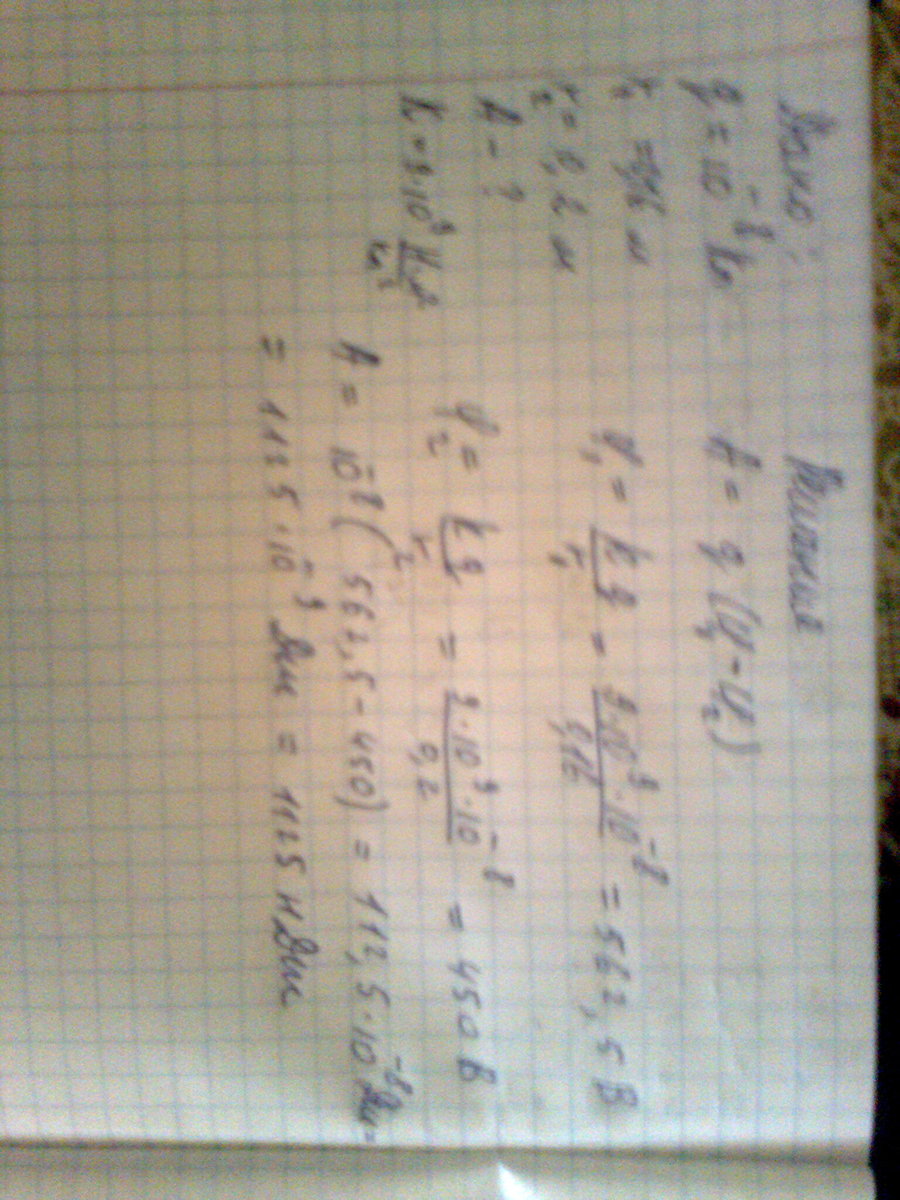 Дано:
q = 10⁻⁸ Кл
r₁ = 0,16 м
r₂ = 0,2 м
A - ?
k = 9·10⁹ Н·м²/Кл²
Решение
A = q (φ₁ - φ₂)
φ₁ = kq/r₁ = 9·10⁹·10⁻⁸/0,16 = 562,5 В
φ₂ = kq/r₂ = 9·10⁹·10⁻⁸/0,2 = 450 В
A = 10⁻⁸ (562,5 - 450) = 112,5·10⁻⁸ Дж =
= 1125·10⁻⁹ Дж = 1125 нДж